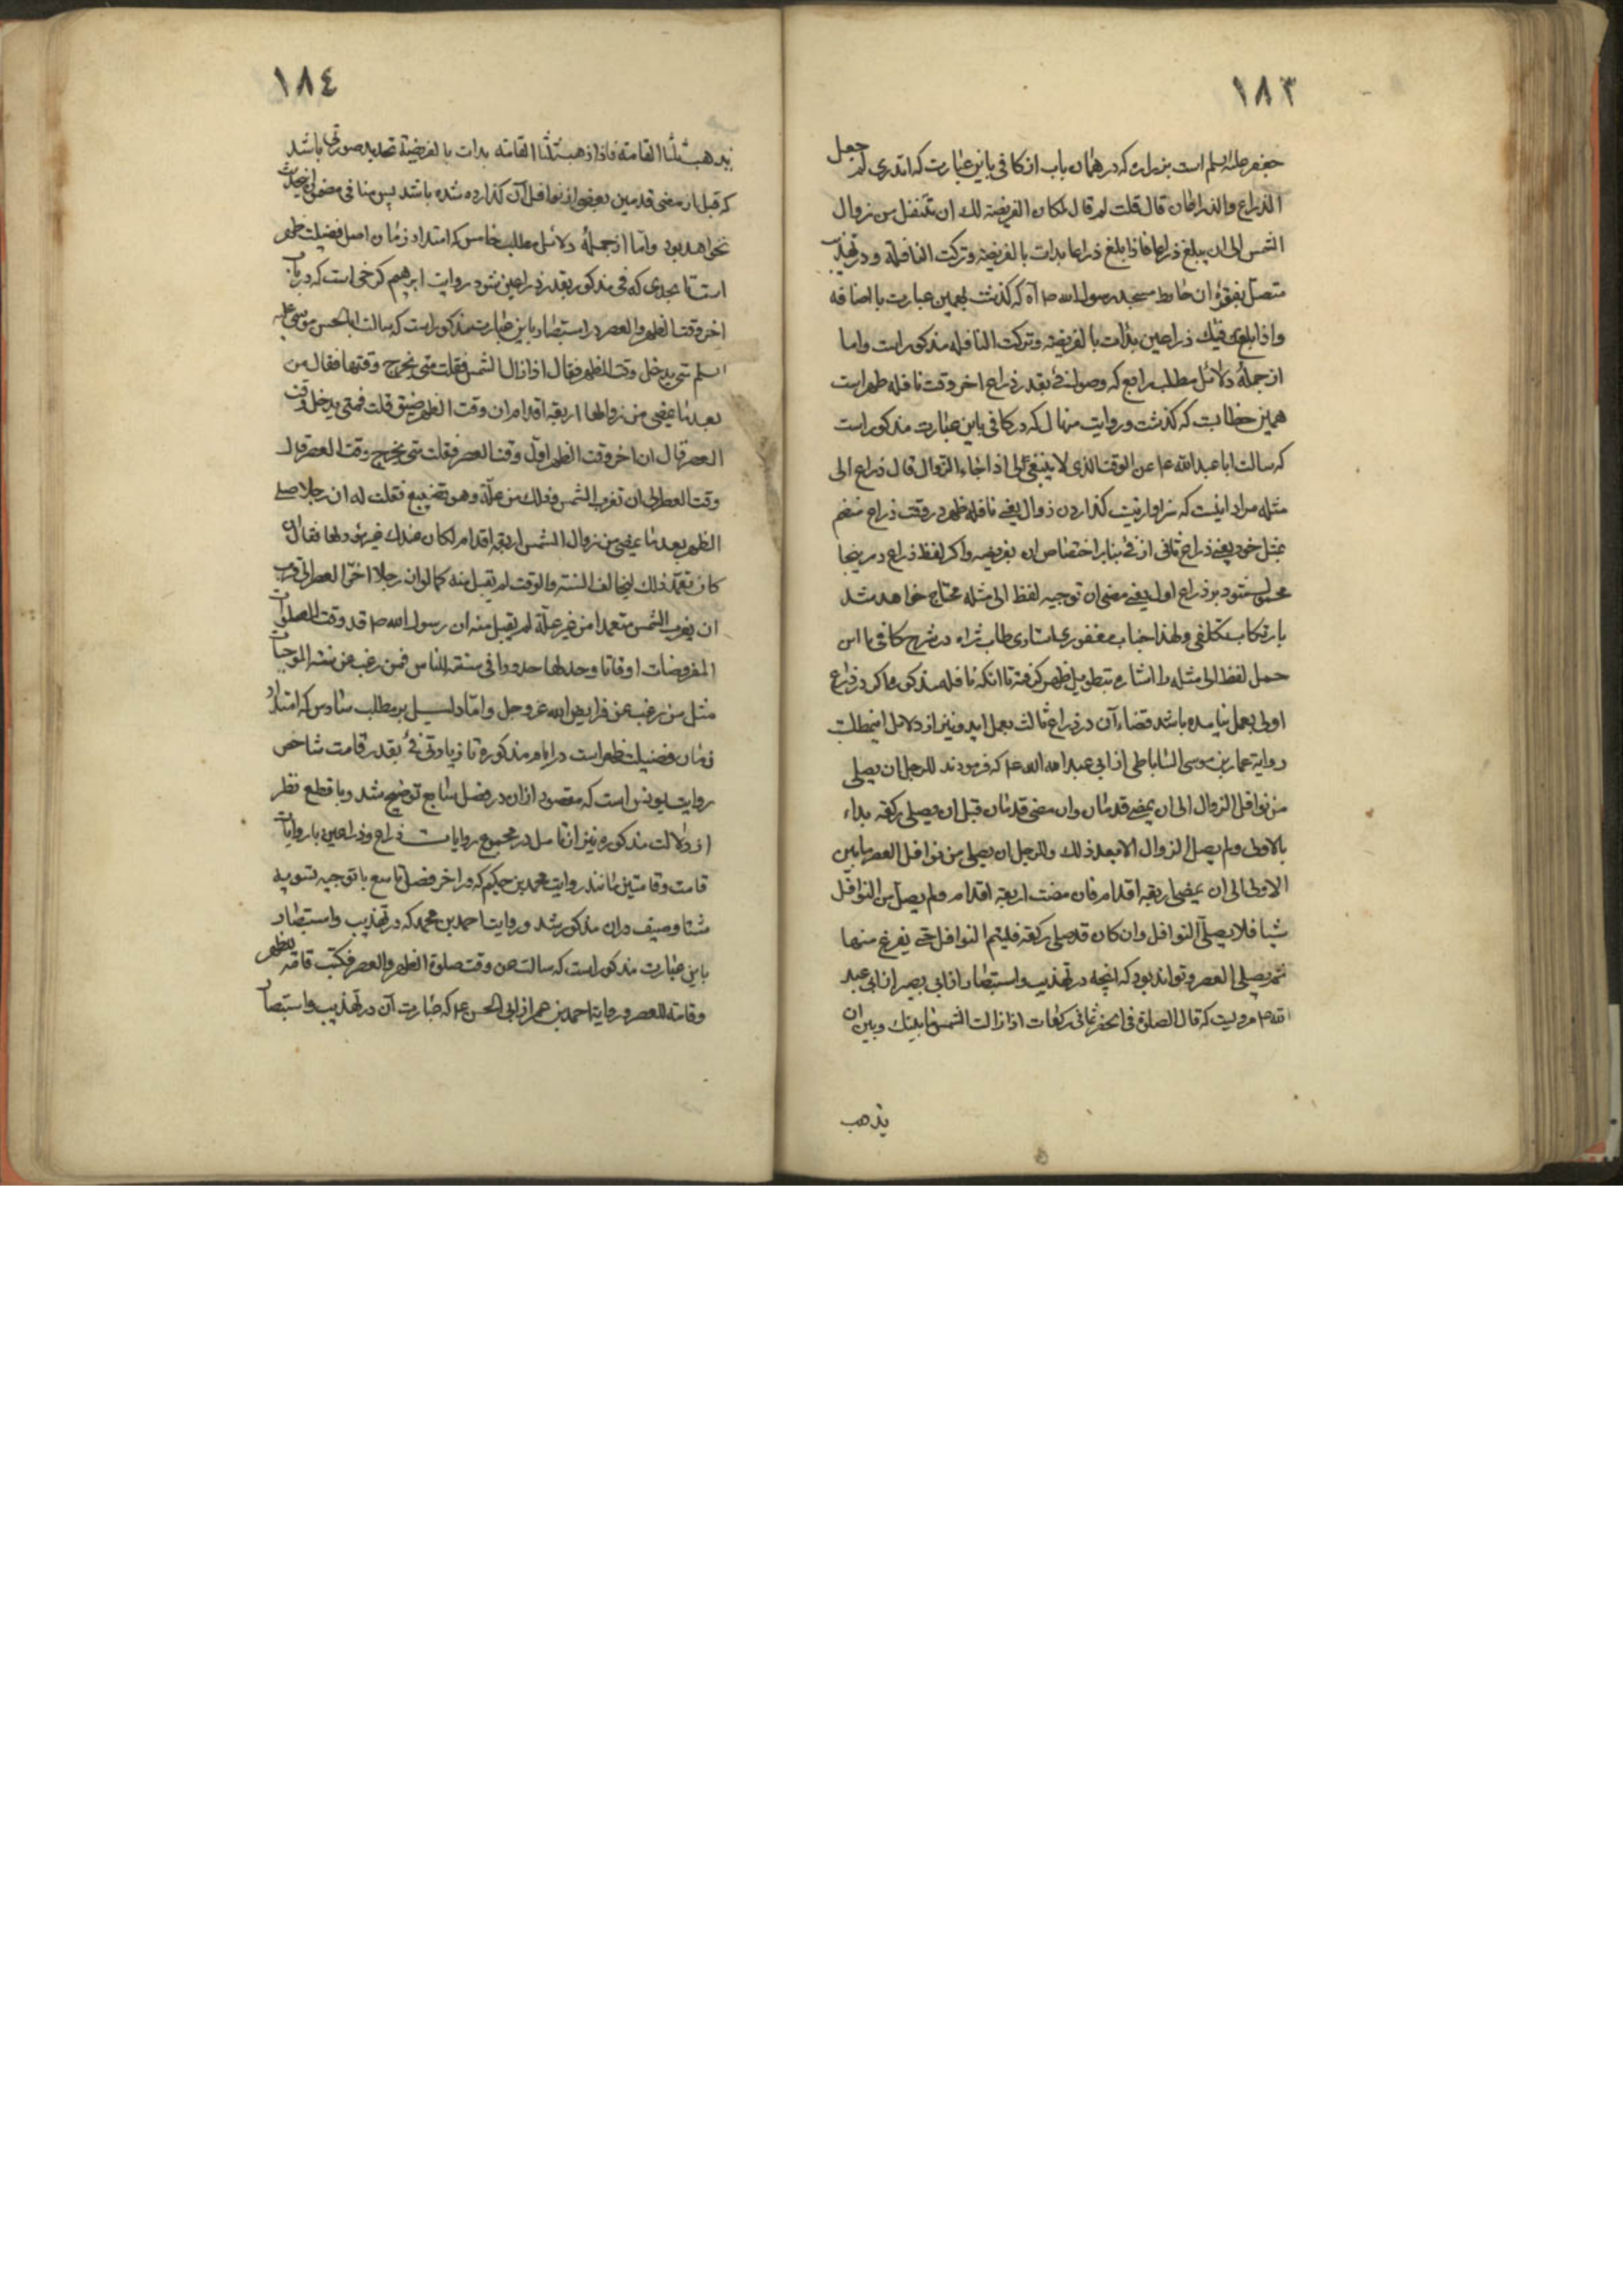 ١٨٣
جعفر علیه السلم است بزراره که در همان باب از کافی باین عبارت که اتدری لم جعل
الذراع والذراعان قال قلت لم قال لمکان الفریضة لك ان تتنفل من زوال
الشمس الی ان یبلغ ذراعا فاذا بلغ ذراعا بدات بالفریضة وترکت النافلة و در تهذیب
متصل بفقره ان حایط مسجد رسول الله ص آه که کذشت بهمین عبارت با اضافه
واذا بلغ فیئك ذراعین بدات بالفریضه وترکت النافله مذکور است واما
از جملهٔ دلائل مطلب رابع که وصول فئ بقدر ذراع اخر وقت نافله ظهر است
همین خطابت که کذشت وروایت منهال که در کافی باین عبارت مذکور است
که سالت ابا عبدالله ع عن الوقت الذی لا ینبغی لی اذا جاء الزوال قال ذراع الی
مثله مراد اینست که سزاوار نیست کذاردن زوال یعنی نافله ظهر در وقت ذراع منضم
بمثل خود یعنی ذراع ثانی از فئ بنابر اختصاص ان بفریضه واکر لفظ ذراع در ینجا
محمول شود بر ذراع اول یعنی مضی ان توجیه لفظ الی مثله محتاج خواهد شد
بارتکاب تکلفی ولهذا جناب مغفوری استادی طاب ثراه در شرح کافی با این
حمل لفظ الی مثله را اشاره بتطویل ظهر کرفته تا انکه نافله مذکور اکر در ذراع
اولی بعمل نیامده باشد قضاء آن در ذراع ثالث بعمل اید ونیز از دلائل اینمطلب
روایة عمار بن موسی الساباطی از ابی عبد الله ع که فرمودند للرجل ان یصلی
من نوافل الزوال الی ان یمضی قدمان وان مضی قدمان قبل ان یصلی رکعة بداء
بالاولی ولم یصل الزوال الا بعد ذلك وللرجل ان یصلی من نوافل العصر مابین
الاولی الی ان یمضی اربعة اقدام فان مضت اربعة اقدام ولم یصل من النوافل
شیا فلا یصل النوافل وان کان قد صلی رکعة فلیتم النوافل حتی یفرغ منها
ثم یصلی العصر وتواند بود که انچه در تهذیب واستبصار از ابی بصیر از ابی عبد
الله ع مرویست که قال الصلوة فی الحضر ثمانی رکعات اذا زالت الشمس ما بینك وبین ان
یذهب
١٨٤
یذهب ثلثا القامة فاذا ذهب ثلثا القامة بدات بالفریضة تحدید صورتی باشد
که قبل از مضی قدمین بعضی از نوافل آن کذارده شده باشد پس منافی مضمون احادیث
نخواهد بود واما از جملهٔ دلائل مطلب خامس که امتداد زمان اصل فضیلت ظهر
است تا بحدی که فئ مذکور بقدر ذراعین شود روایت ابرهیم کرخی است که در باب
اخر وقت الظهر والعصر در استبصار باین عبارت مذکور است که سالت ابا الحسن موسی علیه
السلم متی یدخل وقت الظهر فقال اذا زالت الشمس فقلت متی یخرج وقتها فقال من
بعد ما یمضی من زوالها اربعة اقدام ان وقت الظهر ضیق قلت فمتی یدخل وقت
العصر قال ان اخر وقت الظهر اول وقت العصر فقلت متی یخرج وقت العصر قال
وقت العصر الی ان تغرب الشمس وذلك من علة وهو تضییع فقلت له ان رجلا صلی
الظهر بعد ما یمضی من زوال الشمس اربعة اقدام لکان عندك غیر مؤد لها فقال
کان تعمد ذلك لیخالف السنة والوقت لم یقبل منه کما لو ان رجلا اخر العصر الی قرب
ان یغرب الشمس متعمدا من غیر علة لم یقبل منه ان رسول الله ص قد وقت للصلوات
المفروضات اوقاتا وحد لها حدودا فی سنته للناس فمن رغب عن سنته الموجبات
مثل من رغب عن فرایض الله عز وجل واما دلیل بر مطلب سادس که امتداد
زمان فضیلت ظهر است در ایام مذکوره تا زیادتی فئ بقدر قامت شاخص
روایت یونس است که مقصود از ان در فصل سابع توضیح شد وبا قطع نظر
از دلالت مذکوره نیز از تامل در مجموع روایات ذراع وذراعین با روایات
قامت وقامتین مانند روایت محمد بن حکیم که در اخر فصل تاسع با توجیه تسویه
شتا وصیف دران مذکور شد وروایت احمد بن محمد که در تهذیب واستبصار
باین عبارت مذکور است که سالت عن وقت صلوة الظهر والعصر فکتب قامة للظهر
وقامة للعصر وروایة احمد بن عمر از ابی الحسن ع که عبارت آن در تهذیب واستبصار